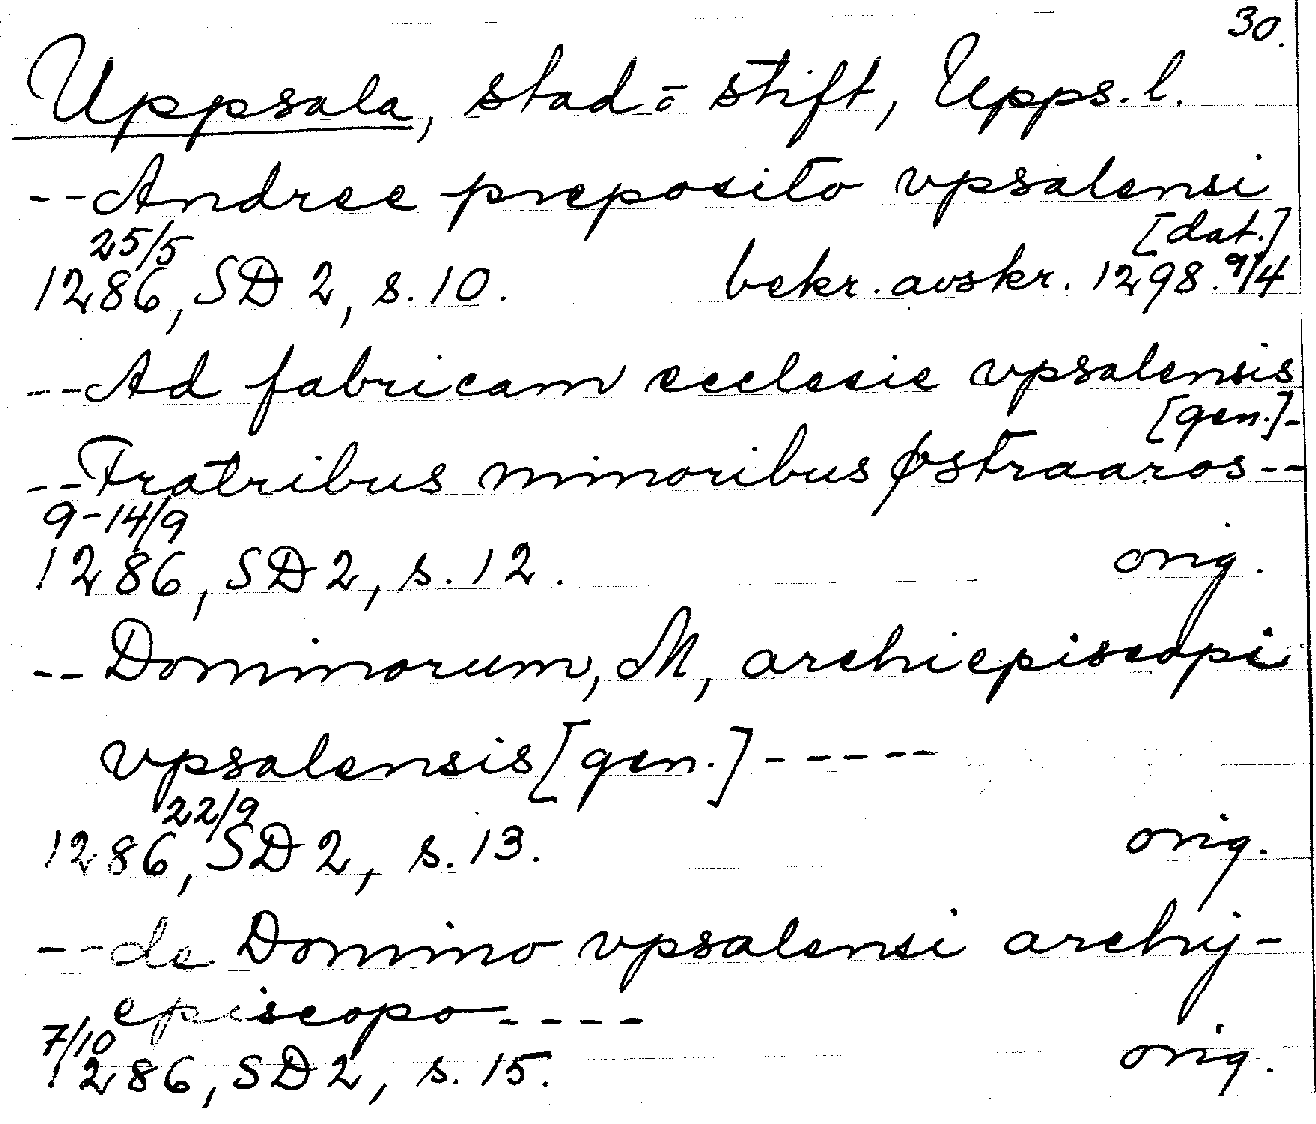 30.
Uppsala, stad o stift, Upps. l.
--Andree preposito vpsalensi
[dat.]
25/5
1286, SD 2, s. 10. bekr. avskr. 1298. 9/4
--Ad fabricam ecclesie vpsalensis
[gen.]-
--Fratribus minoribus østraaros--
9-14/9
1286, SD 2, s. 12. orig.
-- Dominorum, M, archiepiscopi
vpsalensis [gen.] -----
22/9
1286, SD 2, s. 13. orig.
--de Domino vpsalensi archij-
episcopo ----
7/10
1286, SD 2, s. 15. orig.